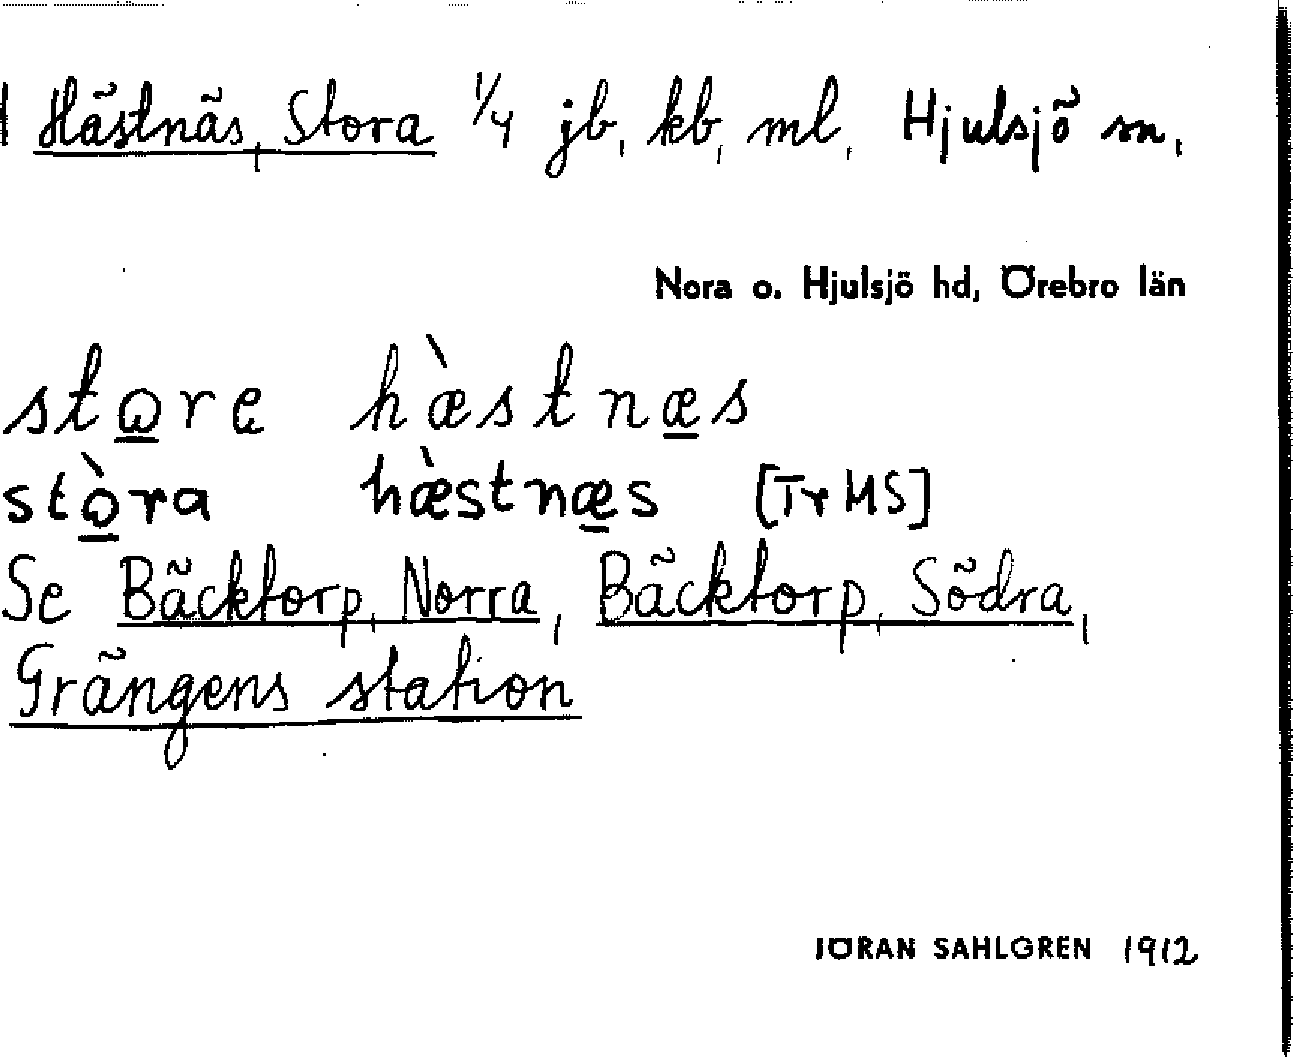 Hästnäs, Stora 1/4 jb, kb, ml, Hjulsjö sn,
Nora o. Hjulsjö hd, Örebro län
store hæ̀stnæs
stòra hæ̀stnæs [Tr MS]
Se Bäcktorp, Norra, Bäcktorp, Södra,
Grängens station
JÖRAN SAHLGREN 1912